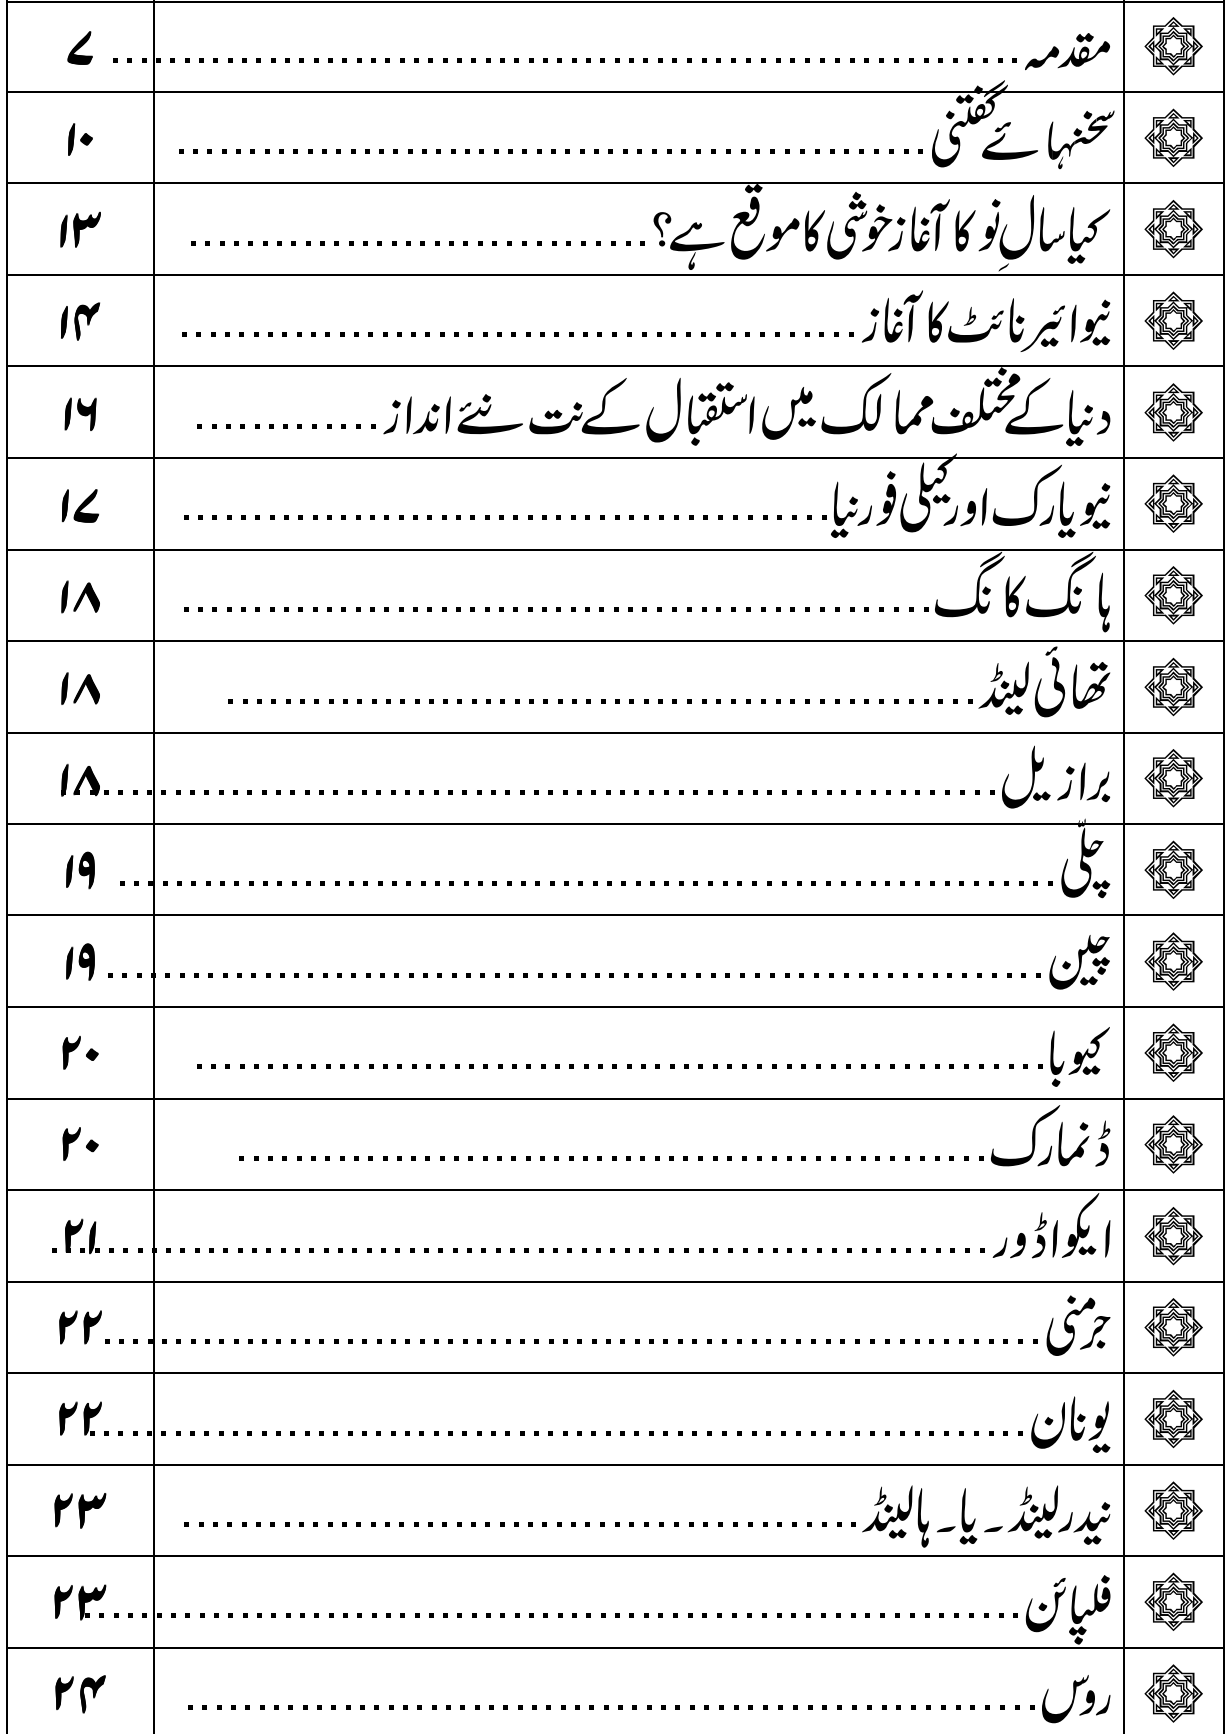 مقدمہ ........ ۷
سخنہائے گفتنی ........ ۱۰
کیا سالِ نو کا آغاز خوشی کا موقع ہے؟ ........ ۱۳
نیو ائیر نائٹ کا آغاز ........ ۱۴
دنیا کے مختلف ممالک میں استقبال کے نت نئے انداز ........ ۱۶
نیویارک اور کیلی فورنیا ........ ۱۷
ہانگ کانگ ........ ۱۸
تھائی لینڈ ........ ۱۸
برازیل ........ ۱۸
چلّی ........ ۱۹
چین ........ ۱۹
کیوبا ........ ۲۰
ڈنمارک ........ ۲۰
ایکواڈور ........ ۲۱
جرمنی ........ ۲۲
یونان ........ ۲۲
نیدرلینڈ ۔ یا۔ ہالینڈ ........ ۲۳
فلپائن ........ ۲۳
روس ........ ۲۴